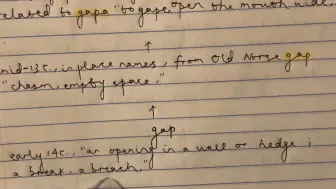 related to gapa "to gape, open the mouth wide,
mid-13c., in place names, from Old Norse gap
"chasm, empty space."
gap
early 14c., "an opening in a wall or hedge ;
a break, a breach."